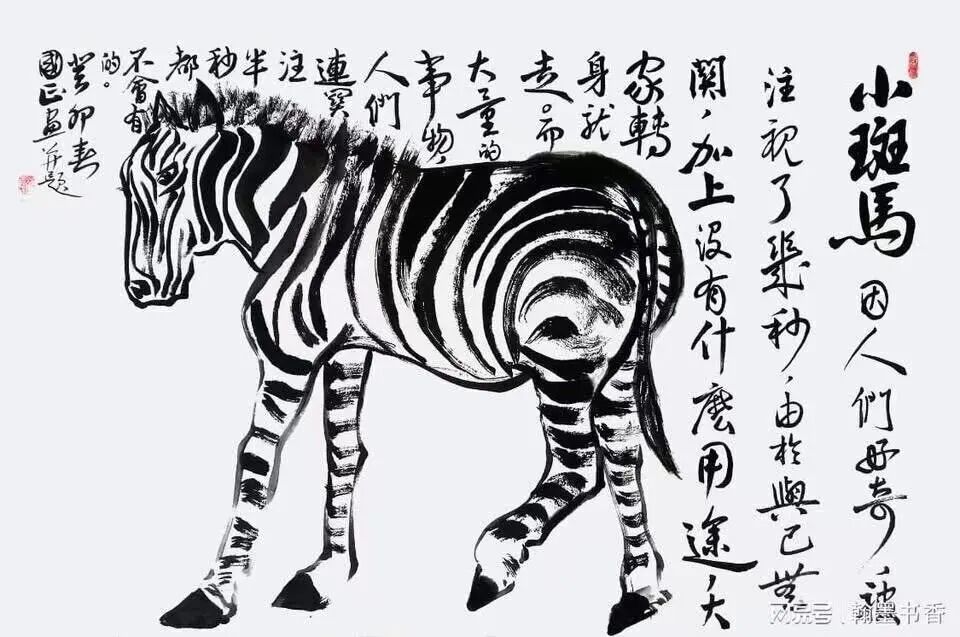 小斑馬 因人們好奇，被
注視了幾秒，由於與己無
関，加上沒有什麼用途，大
家轉
身就
走。而
大量的
事物，
人們
連
注
半
秒
都
不會有
的。
癸卯春
國正畫并題
搜狐号@翰墨书香